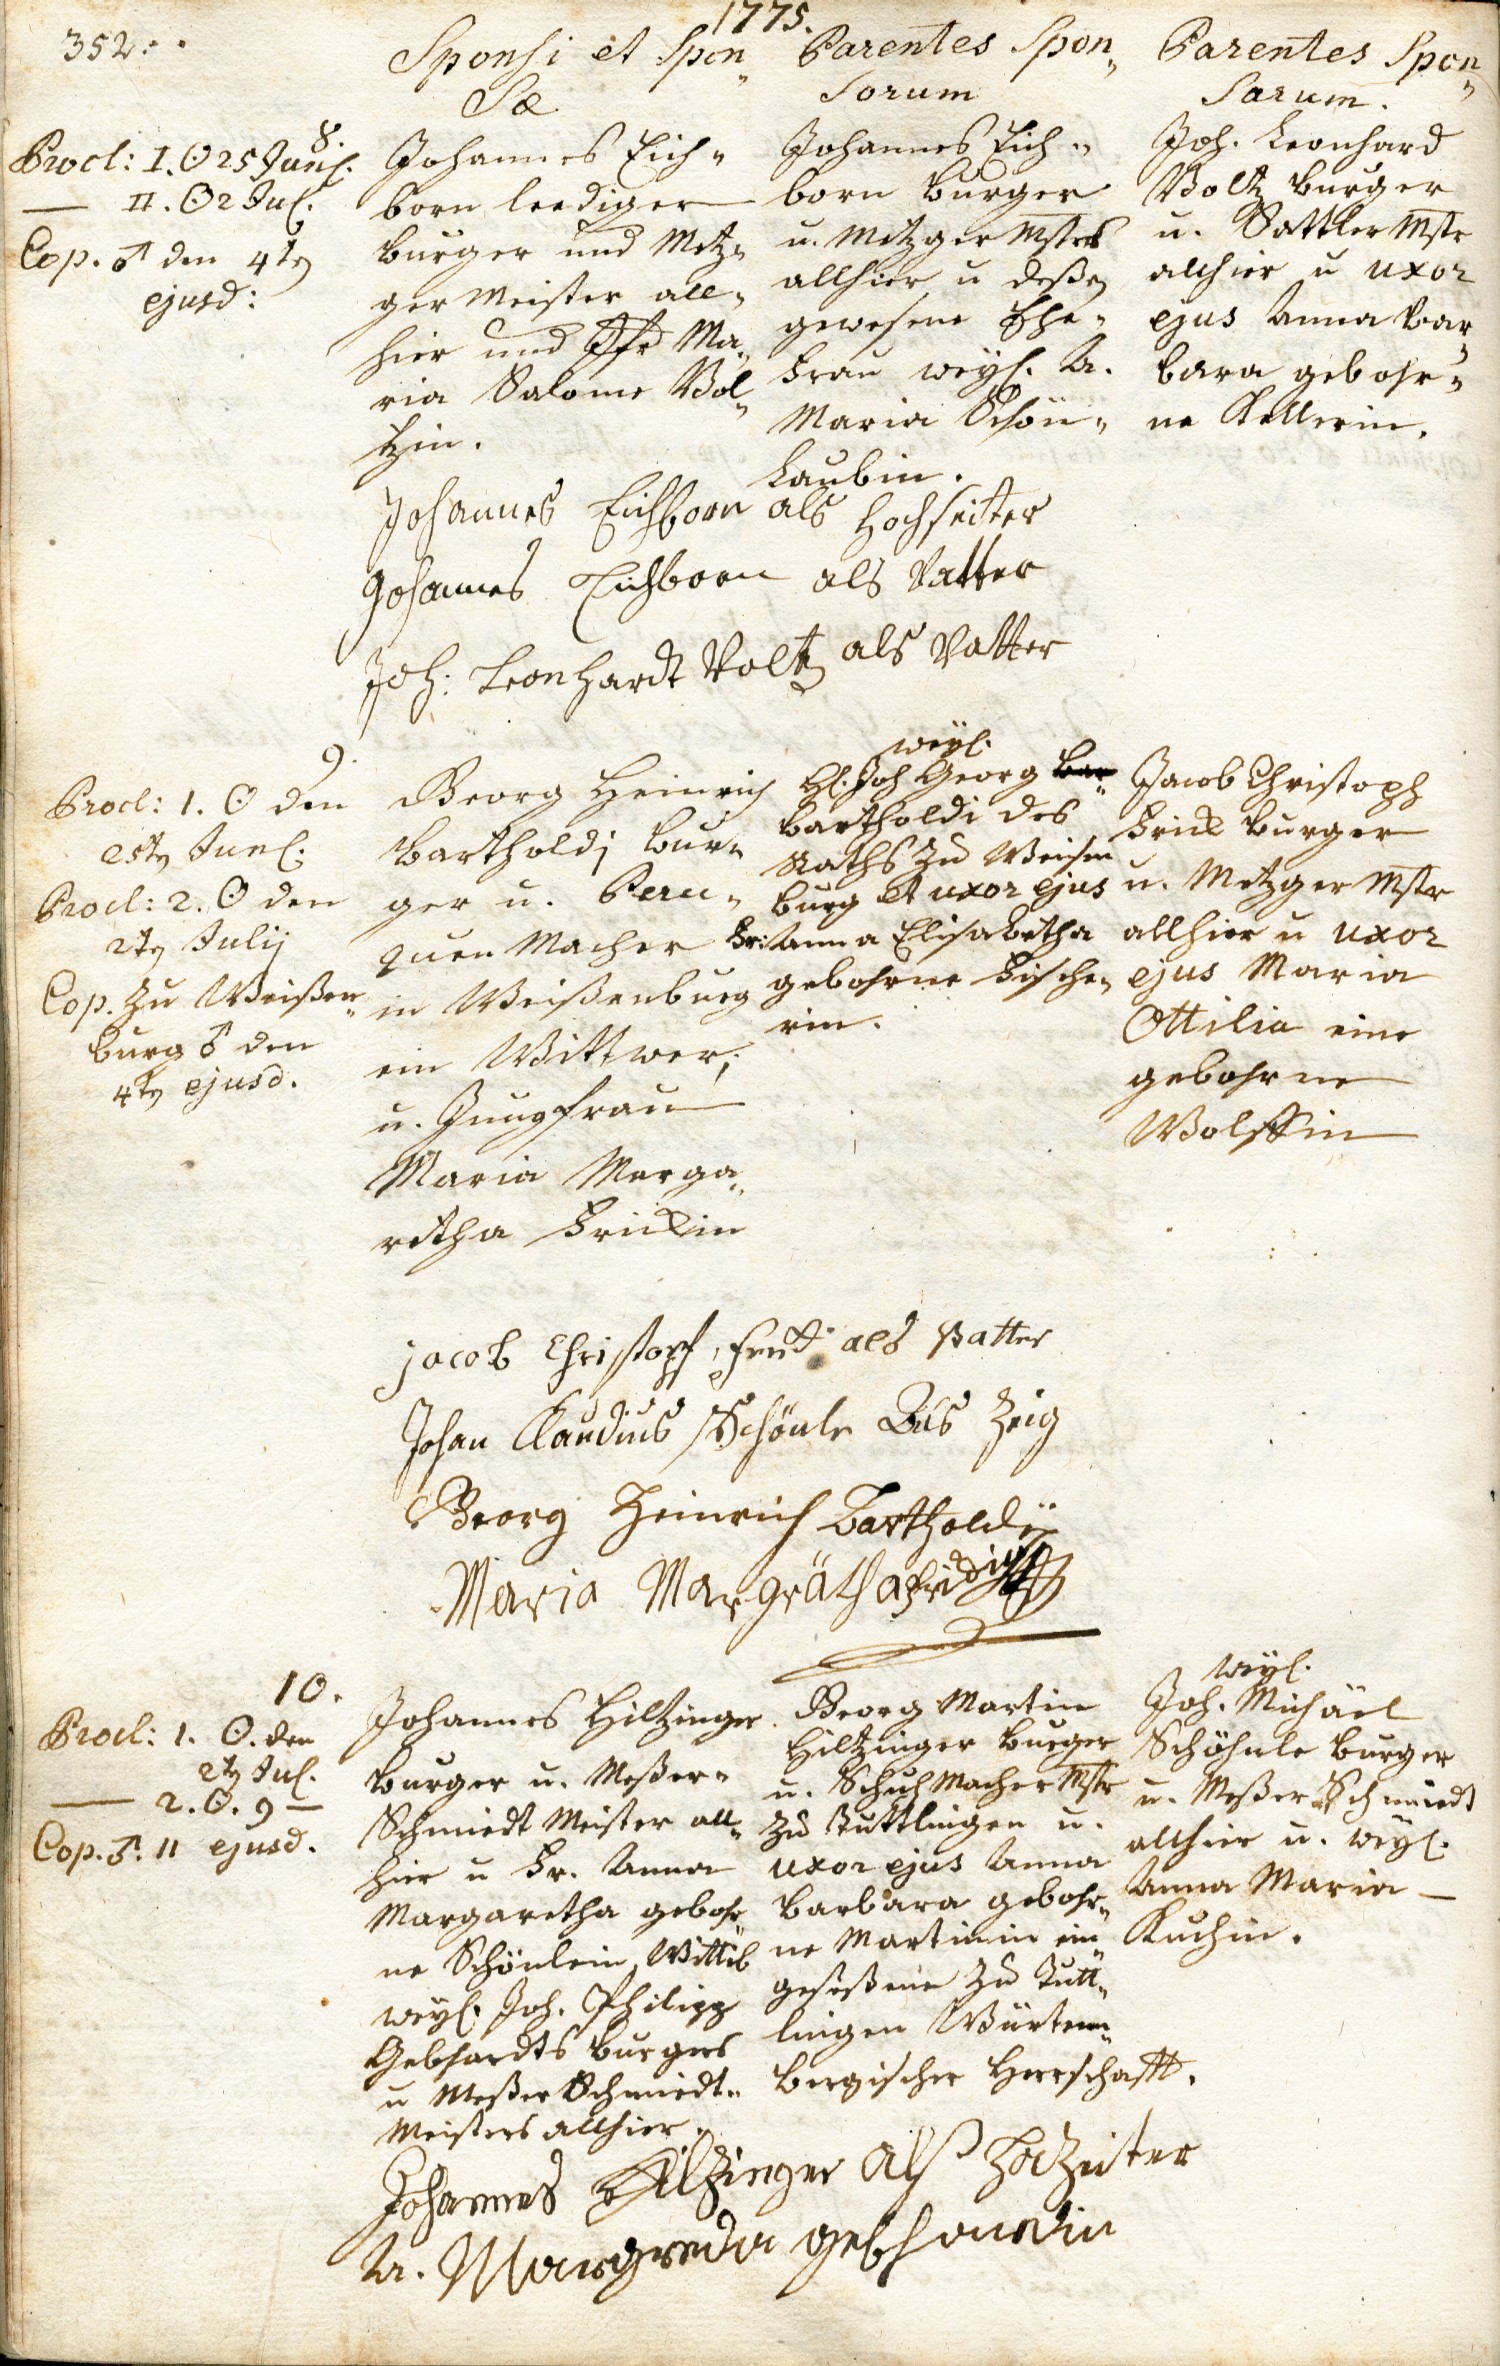 352.
1775.
Sponsi et Spon„
sæ
Parentes Spon„
sorum
Parentes Spon„
sarum.
8.
Procl: I. ☉ 25 Junij.
— II. ☉ 2 Jul.
Cop. ♂ den 4ten
ejusd:
Johannes Eich„
born lediger
burger und Metz„
ger Meister all„
hier und Jfr Ma„
ria Salome Vol„
tzin.
Johannes Eich„
born burger
u. Metzger Mstr
allhier u deßen
gewesene Ehe„
frau weyl. A.
Maria Schön„
laubin.
Joh. Leonhard
Voltz burger
u. Sattler Mstr
allhier u uxor
ejus Anna Bar„
bara gebohr„
ne Kellerin.
Johannes Eichborn als Hochseiter
Johannes Eichborn als Vatter
Joh: Leonhardt Voltz als Vatter
9.
Procl: 1. ☉ den
25ten Junij.
Procl: 2. ☉ den
2ten Julij
Cop. zu Weißen„
burg ♂ den
4ten ejusd.
Georg Heinrich
Bartholdj bur„
ger u. Peru„
quen Macher
in Weißenburg
ein Wittwer,
u. Jungfrau
Maria Marga„
retha Frickin
weyl.
H. Joh Georg Bar„
Bartholdi des
Raths zu Weisen
burg et uxor ejus
Fr: Anna Elisabetha
gebohrne Fische„
rin.
Jacob Christoph
Frick burger
u. Metzger Mstr
allhier u uxor
ejus Maria
Ottilia eine
gebohrne
Wolffin
jacob Christopf frick als Vatter
Johan Claudius Schönle als Zeig
Georg Heinrich Bartholdÿ
Maria Margrätha frickin
10.
Procl: 1. ☉. den
2ten Jul.
— 2. ☉. 9 —
Cop. ♂. 11 ejusd.
Johannes Hiltzinger
burger u. Meßer„
Schmiedt Meister all„
hier u Fr. Anna
Margaretha gebohr„
ne Schönlein, Wittib
weyl. Joh. Philipp
Gebhardts burgers
u Meßer Schmiedt„
Meisters allhier.
Georg Martin
Hiltzinger burger
u. Schuh Macher Mstr
zu Tuttlingen u.
uxor ejus Anna
Barbara gebohr„
ne Martinin ein
geseßene zu Tutt„
lingen Würtem„
bergischer Herrschafft.
weyl.
Joh. Michäel
Schöhnle burger
u. Meßer Schmiedt
allhier u. weyl.
Anna Maria —
Kuchin.
Johannes Hilzinger alß Hozeiter
A. Margreda gebhardin